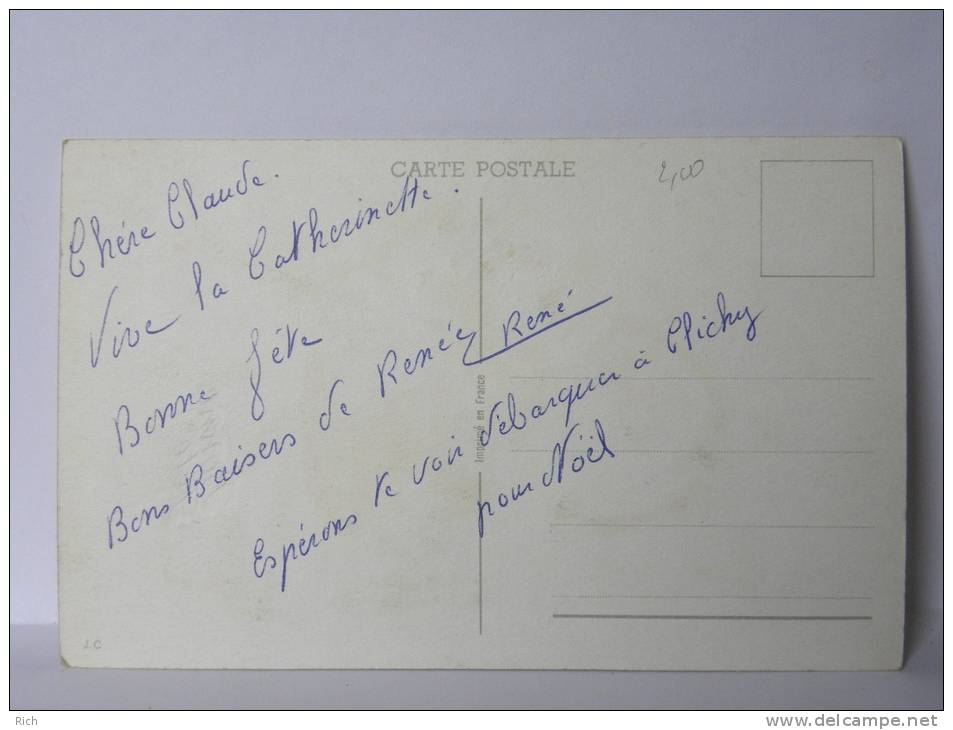 CARTE POSTALE
2,00
Chére Claude.
Vive la Catherinette.
Bonne fête
Bons Baisers de Renée René
Espérons te voir débarquer à Clichy
pour Noël
Imprimé en France
J.C
Rich
www.delcampe.net